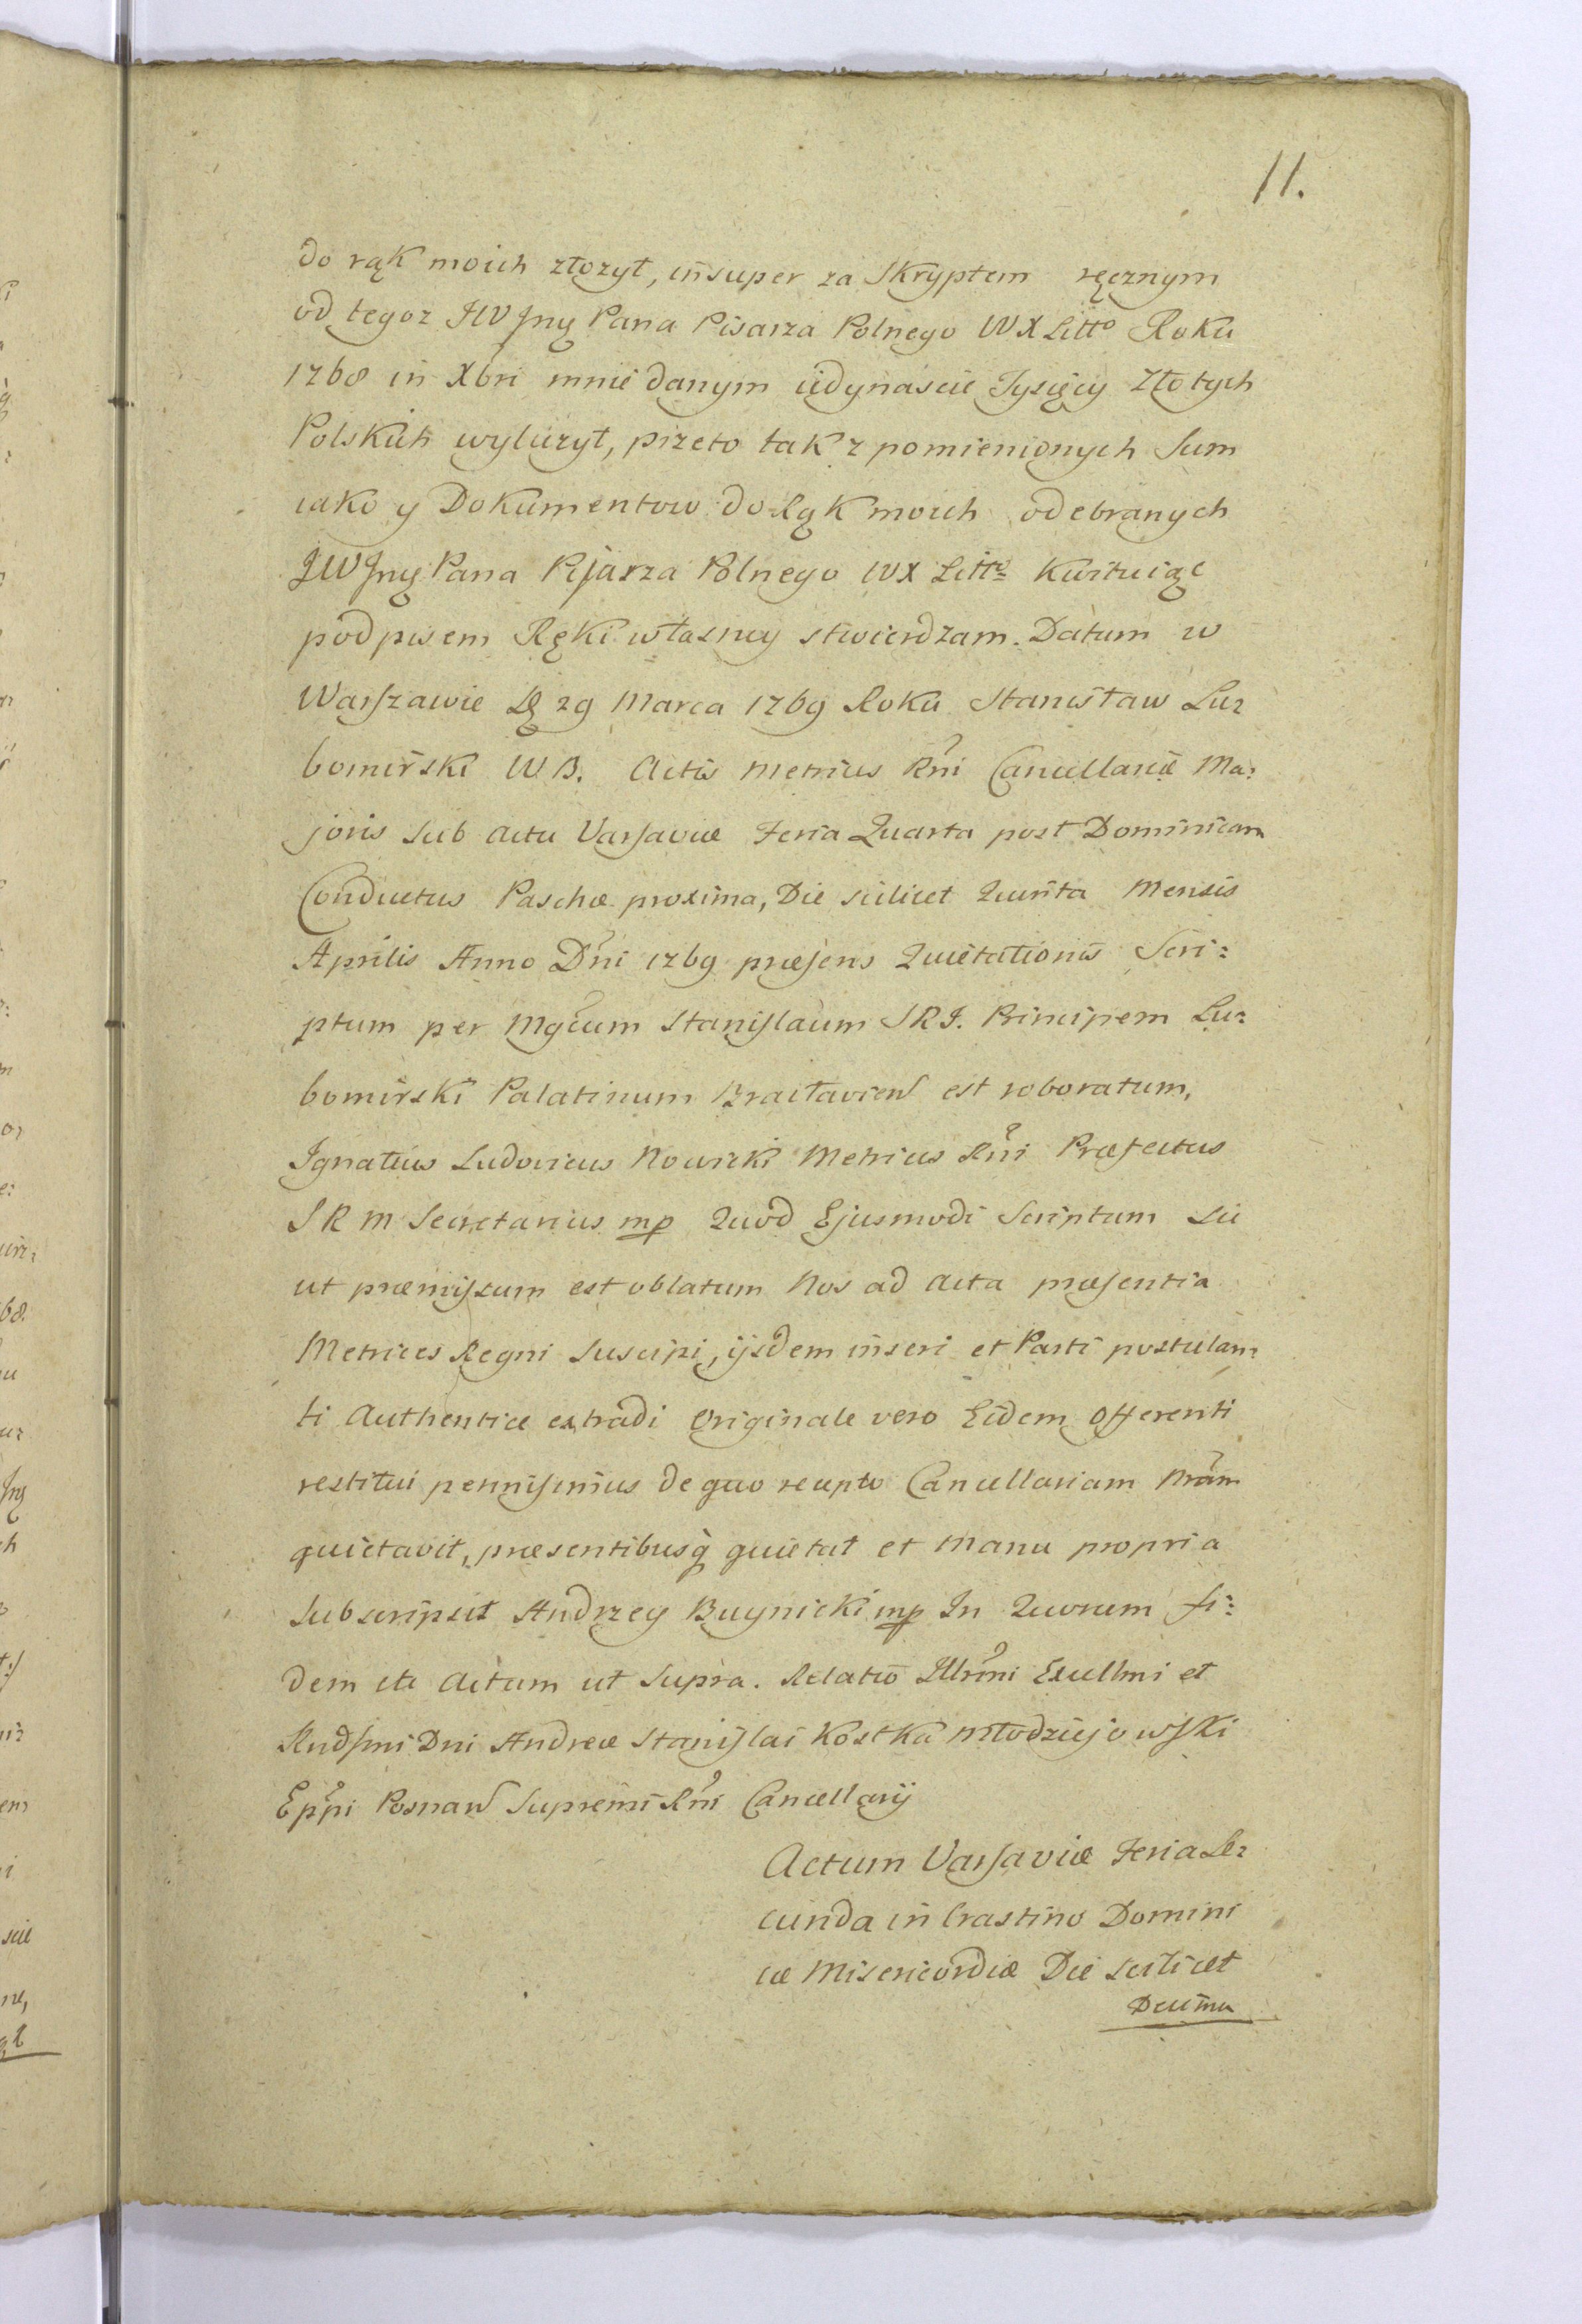 11.
do rąk moich złozył, insuper za Skryptem ręcznym
od tegoz JW Jmę Pana Pisarza Polnego WX Litto Roku
1768 in Xbri mnie danym iedynascie Tysięcy Złotych
Polskich wyliczył, przeto tak z pomienionych Sum
iako y Dokumentow do Rąk moich odebranych
JW Jmę Pana Pisarza Polnego WX Litto Kwituiąc
podpisem Ręki własney stwierdzam. Datum w
Warszawie D 29 Marca 1769 Roku Stanisław Lu=
bomirski WB. Actis Metrices Rni Cancellariæ Ma=
joris sub actu Varsaviæ Feria Quarta post Dominicam
Conductus Paschæ proxima, Die scilicet Quinta Mensis
Aprilis Anno Dni 1769 præsens Quietationis Scri=
ptum per Mgcum Stanislaum SRI. Principem Lu=
bomirski Palatinum Braclavien est roboratum,
Ignatius Ludovicus Nowicki Metrices Rni Præfectus
SRM Secretarius mp Quod Ejusmodi Scriptum sic
ut præmissum est oblatum Nos ad Acta præsentia
Metrices Regni Suscipi, ijsdem inseri et Parti postulan=
ti Authentice extradi Originale vero Eidem Offerenti
restitui permisimus de quo recepto Cancellariam Nram
quietavit, præsentibusq quietat et manu propria
Subscripsit Andrzey Buynicki mp In Quorum fi=
dem etc Actum ut Supra. Relatio Illrmi Excellmi et
Rndsmi Dni Andreæ Stanislai Kostka Młodziejowski
Eppi Posnan Supremi Rni Cancellarij
Actum Varsaviæ Feria Se=
cunda in Crastino Domini
cæ Misericordiæ Die scilicet
Decima